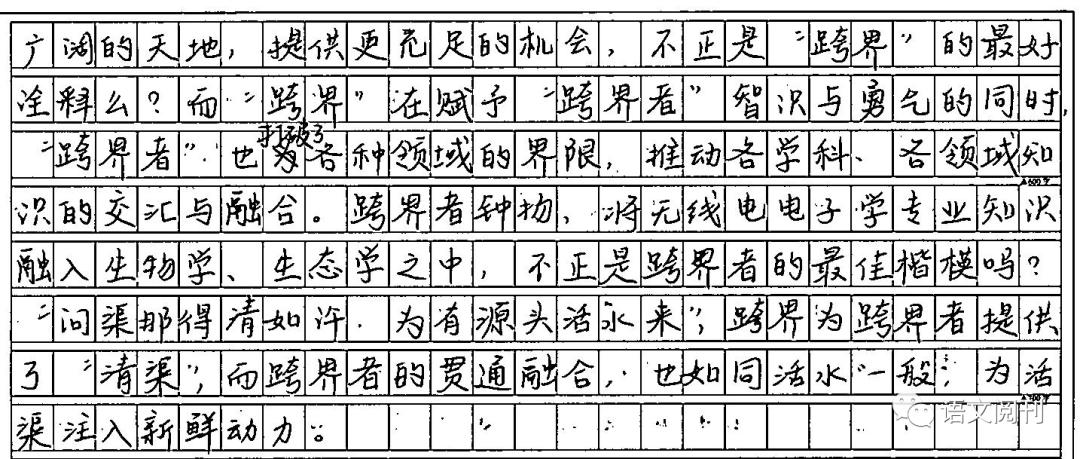 广阔的天地，提供更充足的机会，不正是“跨界”的最好
诠释么？而“跨界”在赋予“跨界者”智识与勇气的同时，
打破了
“跨界者”也为各种领域的界限，推动各学科、各领域知
▲600字
识的交汇与融合。跨界者钟扬，将无线电电子学专业知识
融入生物学、生态学之中，不正是跨界者的最佳楷模吗？
“问渠那得清如许，为有源头活水来”，跨界为跨界者提供
了“清渠”，而跨界者的贯通融合，也如同活水一般，为活
▲700字
渠注入新鲜动力。
语文阅刊